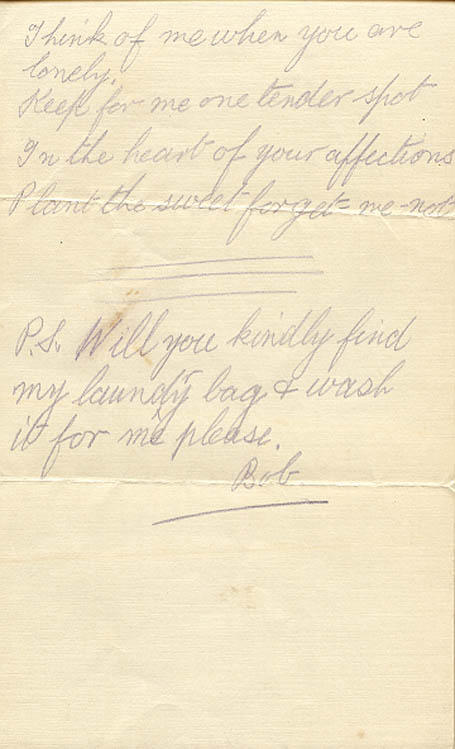 Think of me when you are
lonely.
Keep for me one tender spot
In the heart of your affections
Plant the sweet forget-me-not
P.S. Will you kindly find
my laundy bag & wash
it for me please.
Bob.